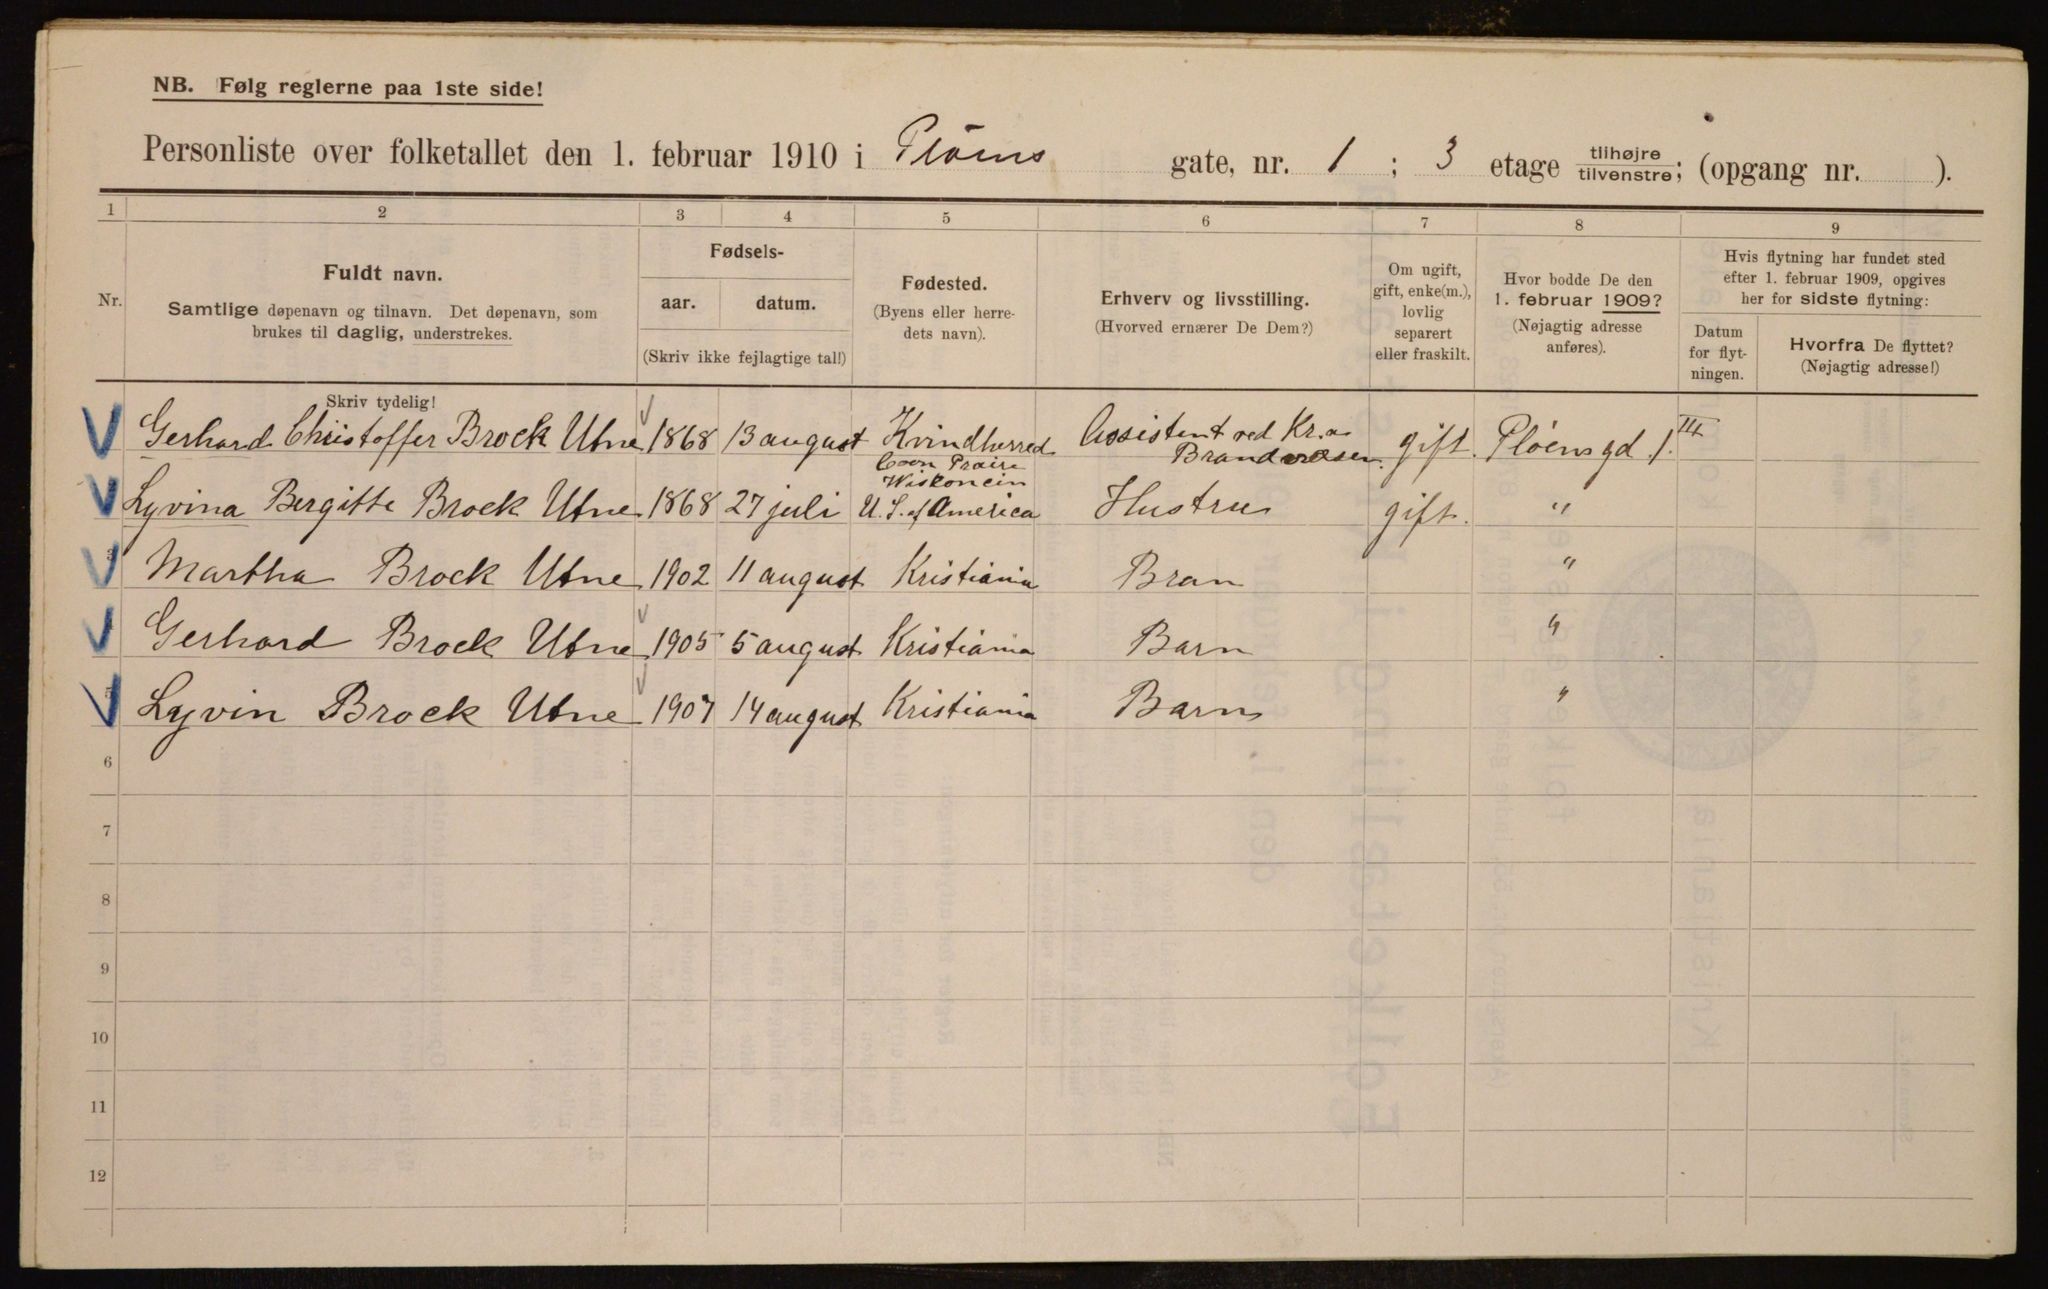 NB. Følg reglerne paa 1ste side!
Personliste over folketallet den 1. februar 1910 i Pløens gate, nr. 1 ; 3 etage tilhøjre tilvenstre; (opgang nr. ).
1 2 3 4 5 6 7 8 9
Nr.
Fuldt navn.
Samtlige døpenavn og tilnavn. Det døpenavn, som
brukes til daglig, understrekes.
Fødsels-
aar. datum.
(Skriv ikke fejlagtige tal!)
Fødested.
(Byens eller herre-
dets navn).
Erhverv og livsstilling.
(Hvorved ernærer De Dem?)
Om ugift,
gift, enke(m.),
lovlig
separert
eller fraskilt.
Hvor bodde De den
1. februar 1909?
(Nøjagtig adresse
anføres).
Hvis flytning har fundet sted
efter 1. februar 1909, opgives
her for sidste flytning:
Datum
for flyt-
ningen.
Hvorfra De flyttet?
(Nøjagtig adresse!)
Skriv tydelig!
Gerhard Christoffer Brock Utne 1868 13 august Kvindherred Assistent ved Kr.a Brandvæsen. gift. Pløensgd 1. III
Coon Praire
Wiskoncin
Lyvina Bergitte Brock Utne 1868 27 juli U. S. of America Hustru gift. "
3 Martha Brock Utne 1902 11 august Kristiania Bran "
Gerhard Brock Utne 1905 5 august Kristiania Barn "
5 Lyvin Brock Utne 1907 14 august Kristiania Barn "
6
7
8
9
10
11
12